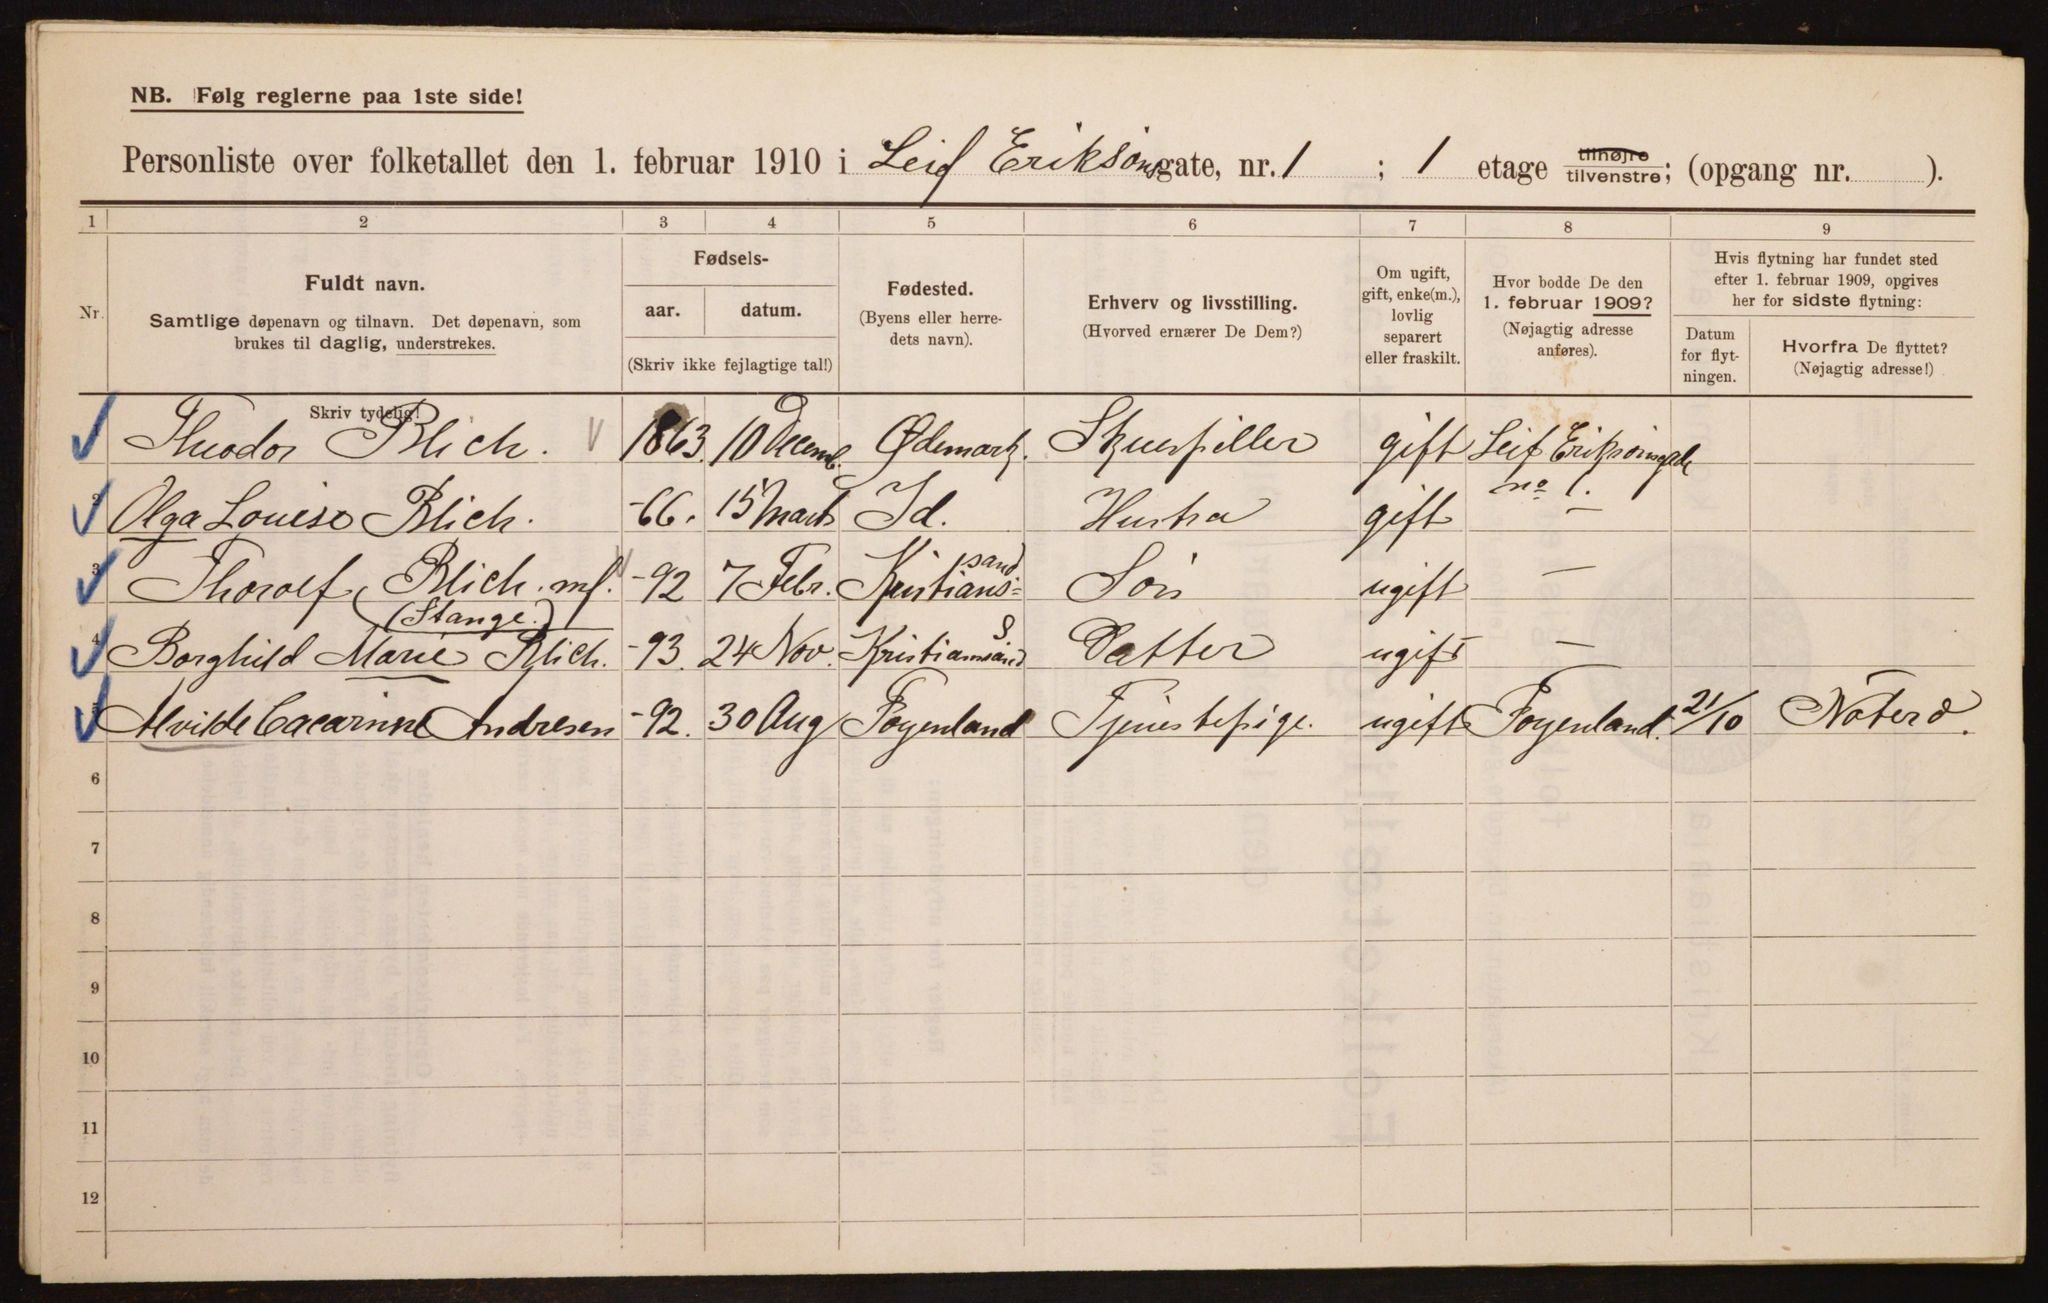 NB. Følg reglerne paa 1ste side!
Personliste over folketallet den 1. februar 1910 i Leif Eriksons gate, nr. 1 ; 1 etage tilhøjre tilvenstre; (opgang nr. ).
1 2 3 4 5 6 7 8 9
Nr. Fuldt navn. Samtlige døpenavn og tilnavn. Det døpenavn, som brukes til daglig, understrekes. Skriv tydelig!
Fødsels- aar. datum. (Skriv ikke fejlagtige tal!)
Fødested. (Byens eller herredets navn).
Erhverv og livsstilling. (Hvorved ernærer De Dem?)
Om ugift, gift, enke(m.), lovlig separert eller fraskilt.
Hvor bodde De den 1. februar 1909? (Nøjagtig adresse anføres).
Hvis flytning har fundet sted efter 1. februar 1909, opgives her for sidste flytning:
Datum for flytningen. Hvorfra De flyttet? (Nøjagtig adresse!)
Theodor Blich. 1863. 10 Decemb. Ødemark. Skuespiller gift Leif Eriksonsgade no 1.
2 Olga Louise Blich. -66. 15 Marts Id. Hustru gift –
3 Thorolf Blich. mf. (Stange.) -92 7 Febr. Kristianssand Søn ugift –
4 Borghild Marie Blich. -93. 24 Nov. Kristianssand Datter ugift –
5 Alvilde Cacarinne Andresen -92. 30 Aug Foyenland Tjenestepige. ugift Foyenland. 21/10 Nøterø.
6
7
8
9
10
11
12